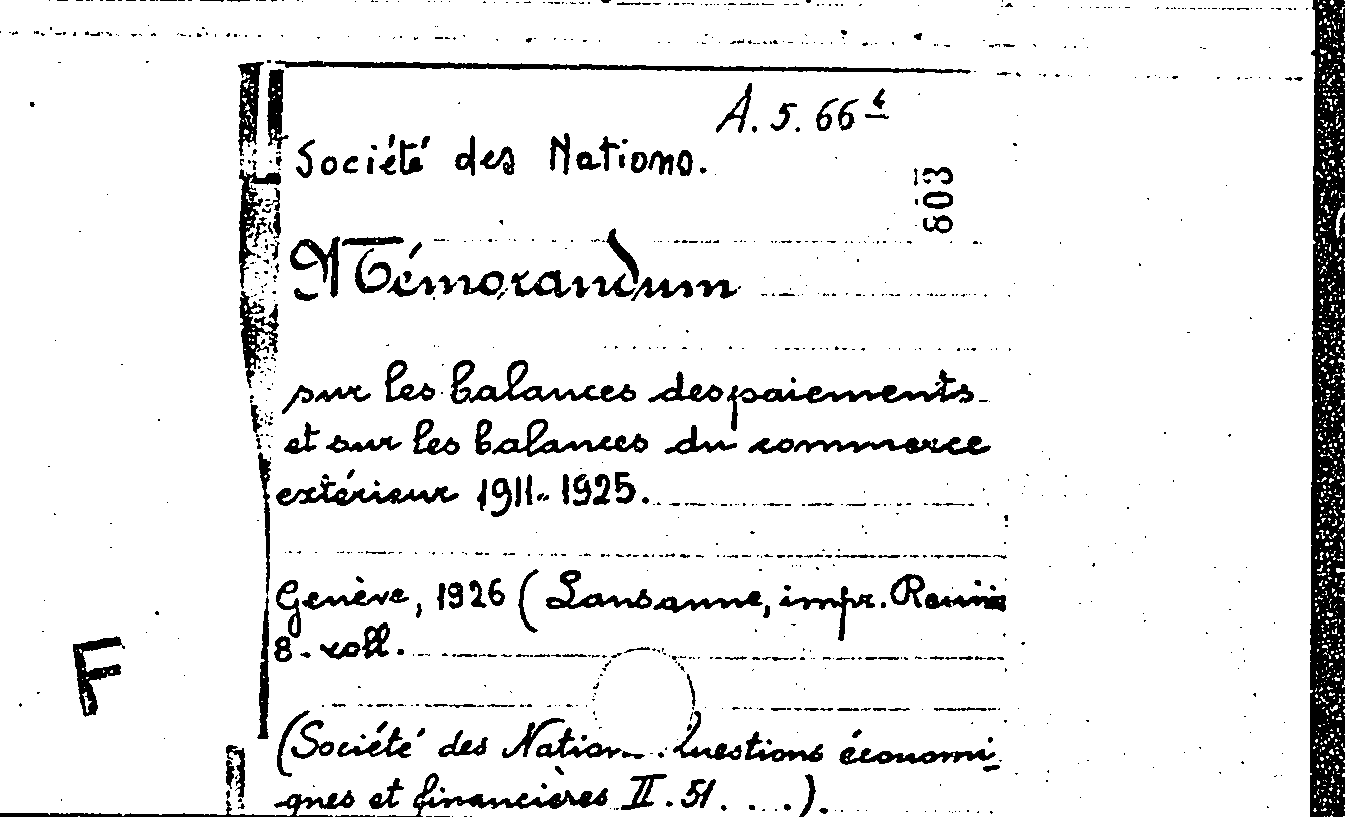 A. 5. 66⁴
Société des Nations.
803
Mémorandum
sur les balances des paiements
et sur les balances du commerce
extérieur 1911-1925.
Genève, 1926 (Lausanne, impr. Réunies
8. coll.
F
(Société des Nation... Questions économi-
ques et financières II. 51. ...).